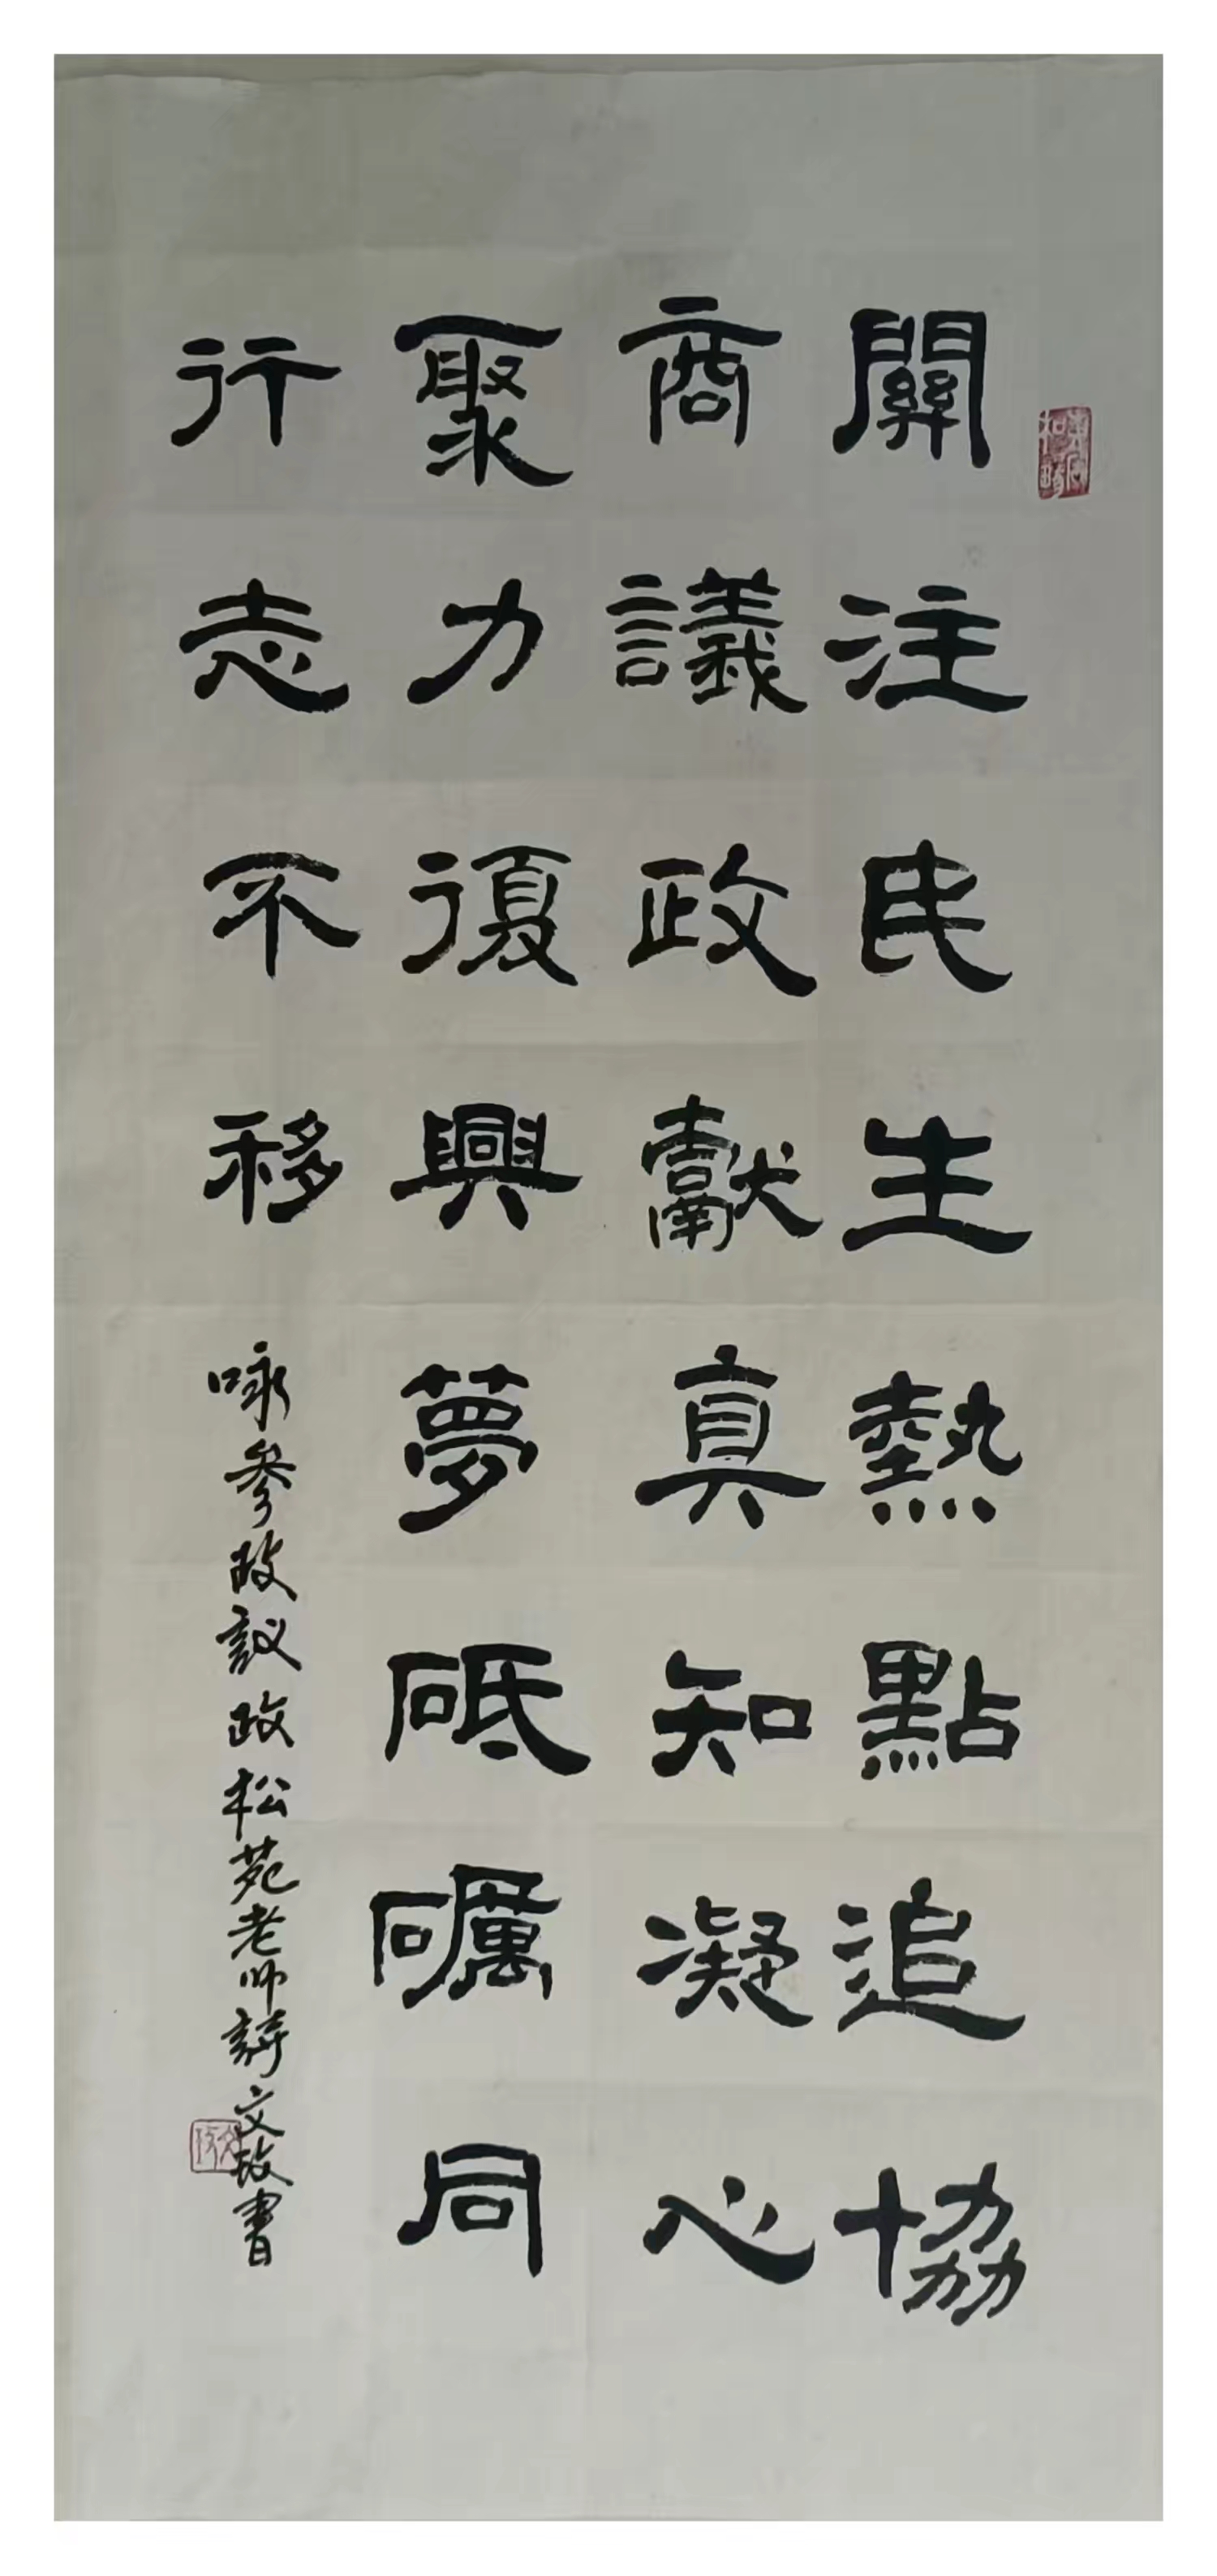 關注民生熱點追協
商議政獻真知凝心
聚力復興夢砥礪同
行志不移
咏參政議政松苑老師詩文玫書